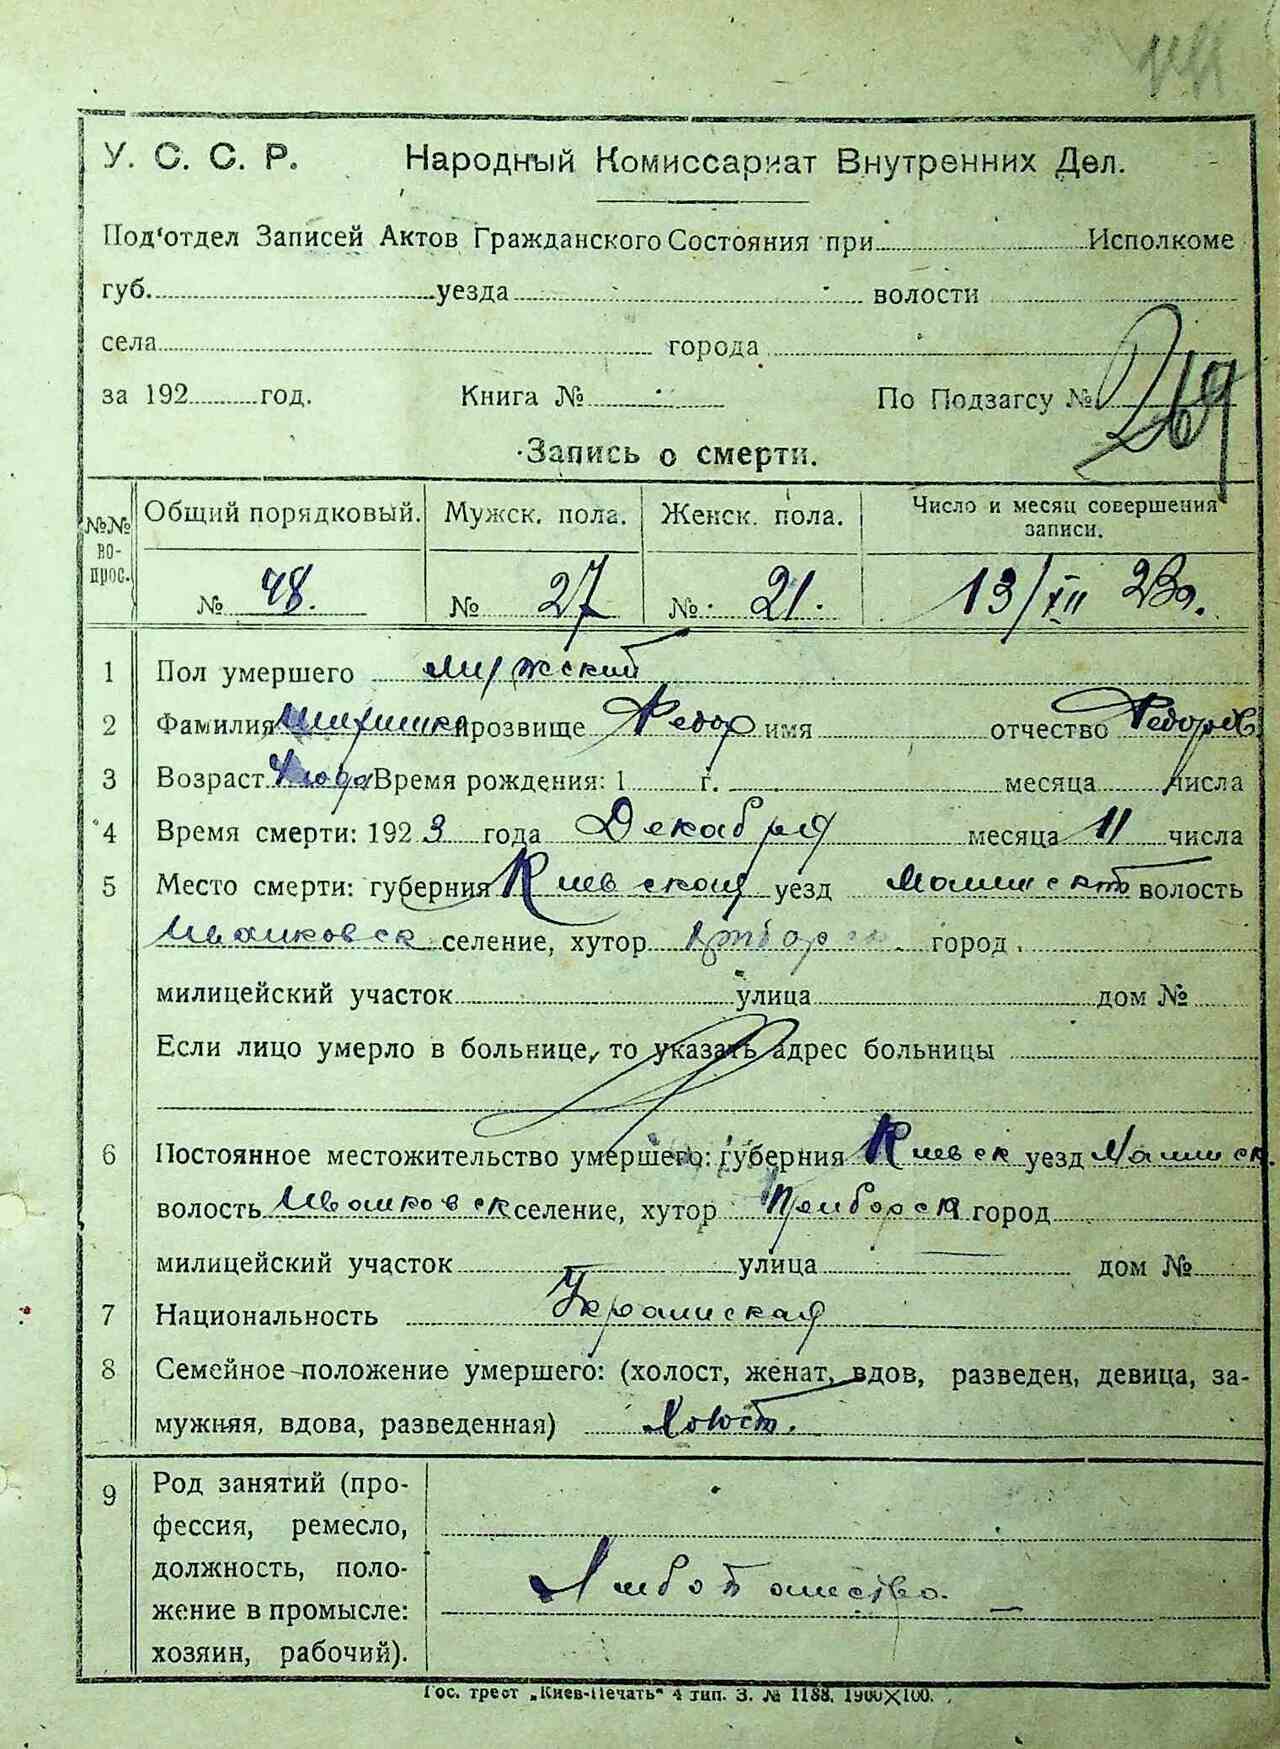 У. С. С. Р. Народный Комиссариат Внутренних Дел.
Под'отдел Записей Актов Гражданского Состояния при Исполкоме
губ. уезда волости
села города
за 192 год. Книга № По Подзагсу № 269
Запись о смерти.
№№ вопрос. Общий порядковый. Мужск. пола. Женск. пола. Число и месяц совершения записи.
№ 48. № 27 № 21. 13/XII 23г.
1 Пол умершего мужской
2 Фамилия прозвище Федор имя отчество Федоров
3 Возраст Время рождения: 1 г. месяца числа
4 Время смерти: 1923 года Декабря месяца 11 числа
5 Место смерти: губерния Киевская уезд волость
Иванковск селение, хутор город
милицейский участок улица дом №
Если лицо умерло в больнице, то указать адрес больницы
6 Постоянное местожительство умершего: губерния Киевск уезд
волость Иванковск селение, хутор город
милицейский участок улица дом №
7 Национальность Украинская
8 Семейное положение умершего: (холост, женат, вдов, разведен, девица, за-
мужняя, вдова, разведенная) Холост.
9 Род занятий (про-
фессия, ремесло,
должность, поло-
жение в промысле:
хозяин, рабочий).
Хлебопашество.
Гос. трест „Киев-Печать" 4 тип. З. № 1188. 1900×100.